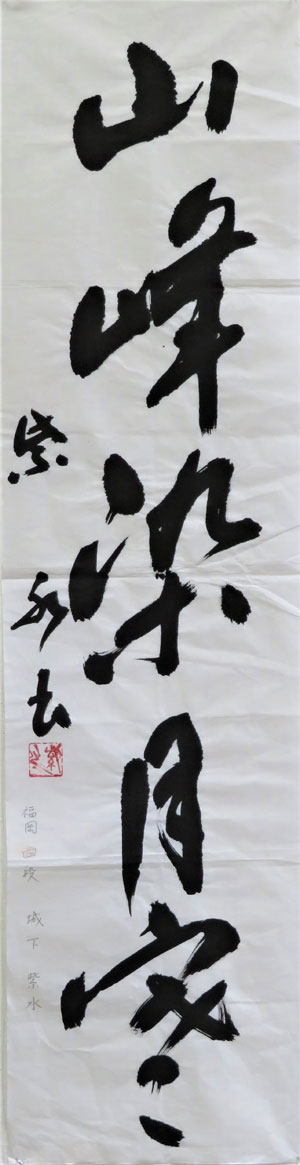 山峰染月寒
紫水書
福岡 四陵 城下 紫水